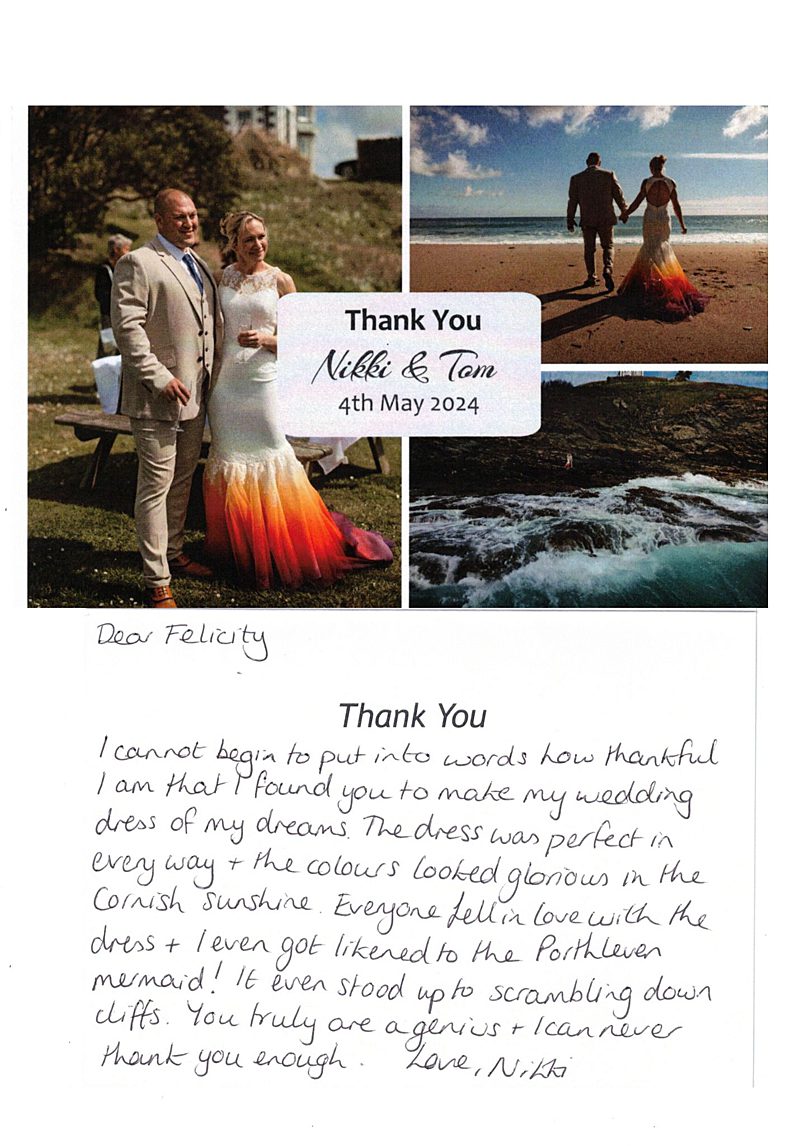 Thank You
Nikki & Tom
4th May 2024
Dear Felicity
Thank You
I cannot begin to put into words how thankful
I am that I found you to make my wedding
dress of my dreams. The dress was perfect in
every way + the colours looked glorious in the
Cornish sunshine. Everyone fell in love with the
dress + I even got likened to the Porthleven
mermaid! It even stood up to scrambling down
cliffs. You truly are a genius + I can never
thank you enough. Love, Nikki